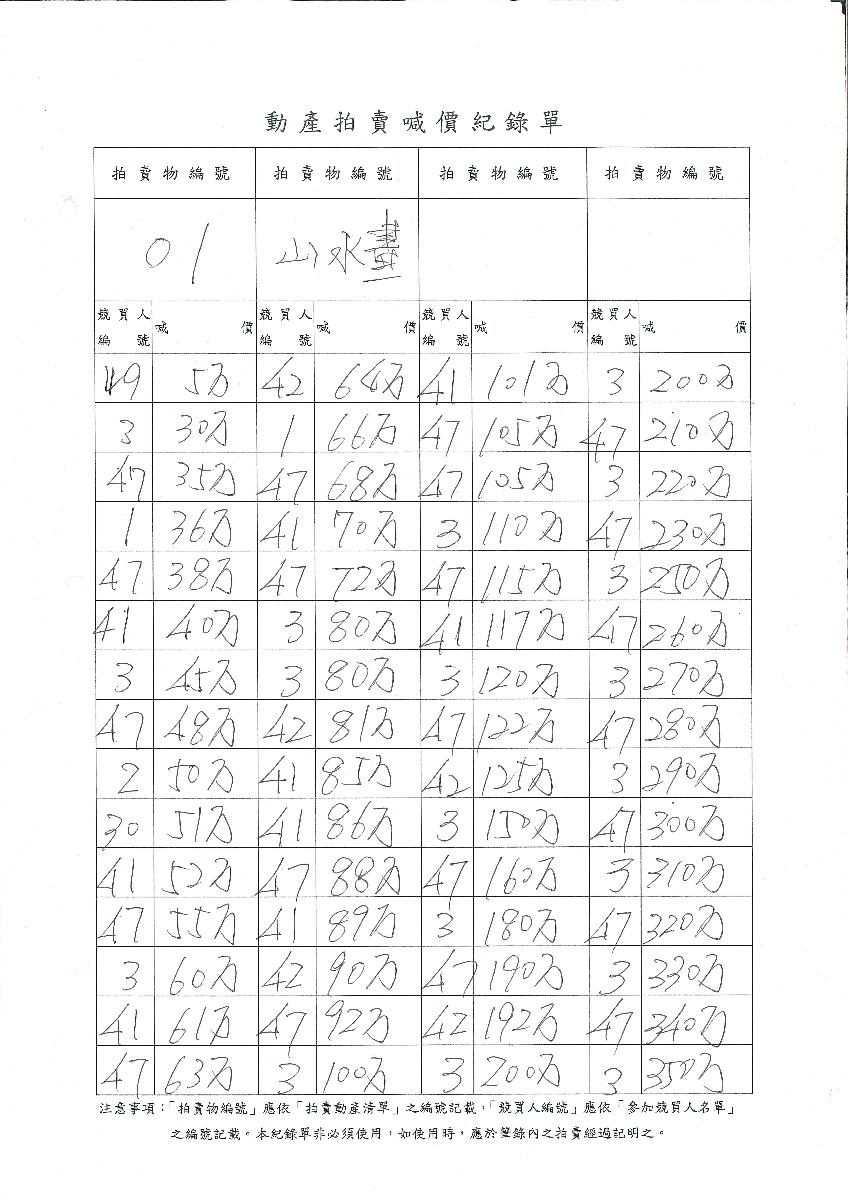 動產拍賣喊價紀錄單
拍賣物編號 拍賣物編號 拍賣物編號 拍賣物編號
01 山水畫
競買人編號 喊價 競買人編號 喊價 競買人編號 喊價 競買人編號 喊價
49 5万 42 64万 41 101万 3 200万
3 30万 1 66万 47 105万 47 210万
47 35万 47 68万 47 105万 3 220万
1 36万 41 70万 3 110万 47 230万
47 38万 47 72万 47 115万 3 250万
41 40万 3 80万 41 117万 47 260万
3 45万 3 80万 3 120万 3 270万
47 48万 42 81万 47 122万 47 280万
2 50万 41 85万 42 125万 3 290万
30 51万 41 86万 3 150万 47 300万
41 52万 47 88万 47 160万 3 310万
47 55万 41 89万 3 180万 47 320万
3 60万 42 90万 47 190万 3 330万
41 61万 47 92万 42 192万 47 340万
47 63万 3 100万 3 200万 3 350万
注意事項：「拍賣物編號」應依「拍賣動產清單」之編號記載，「競買人編號」應依「參加競買人名單」
之編號記載。本紀錄單非必須使用，如使用時，應於筆錄內之拍賣經過記明之。